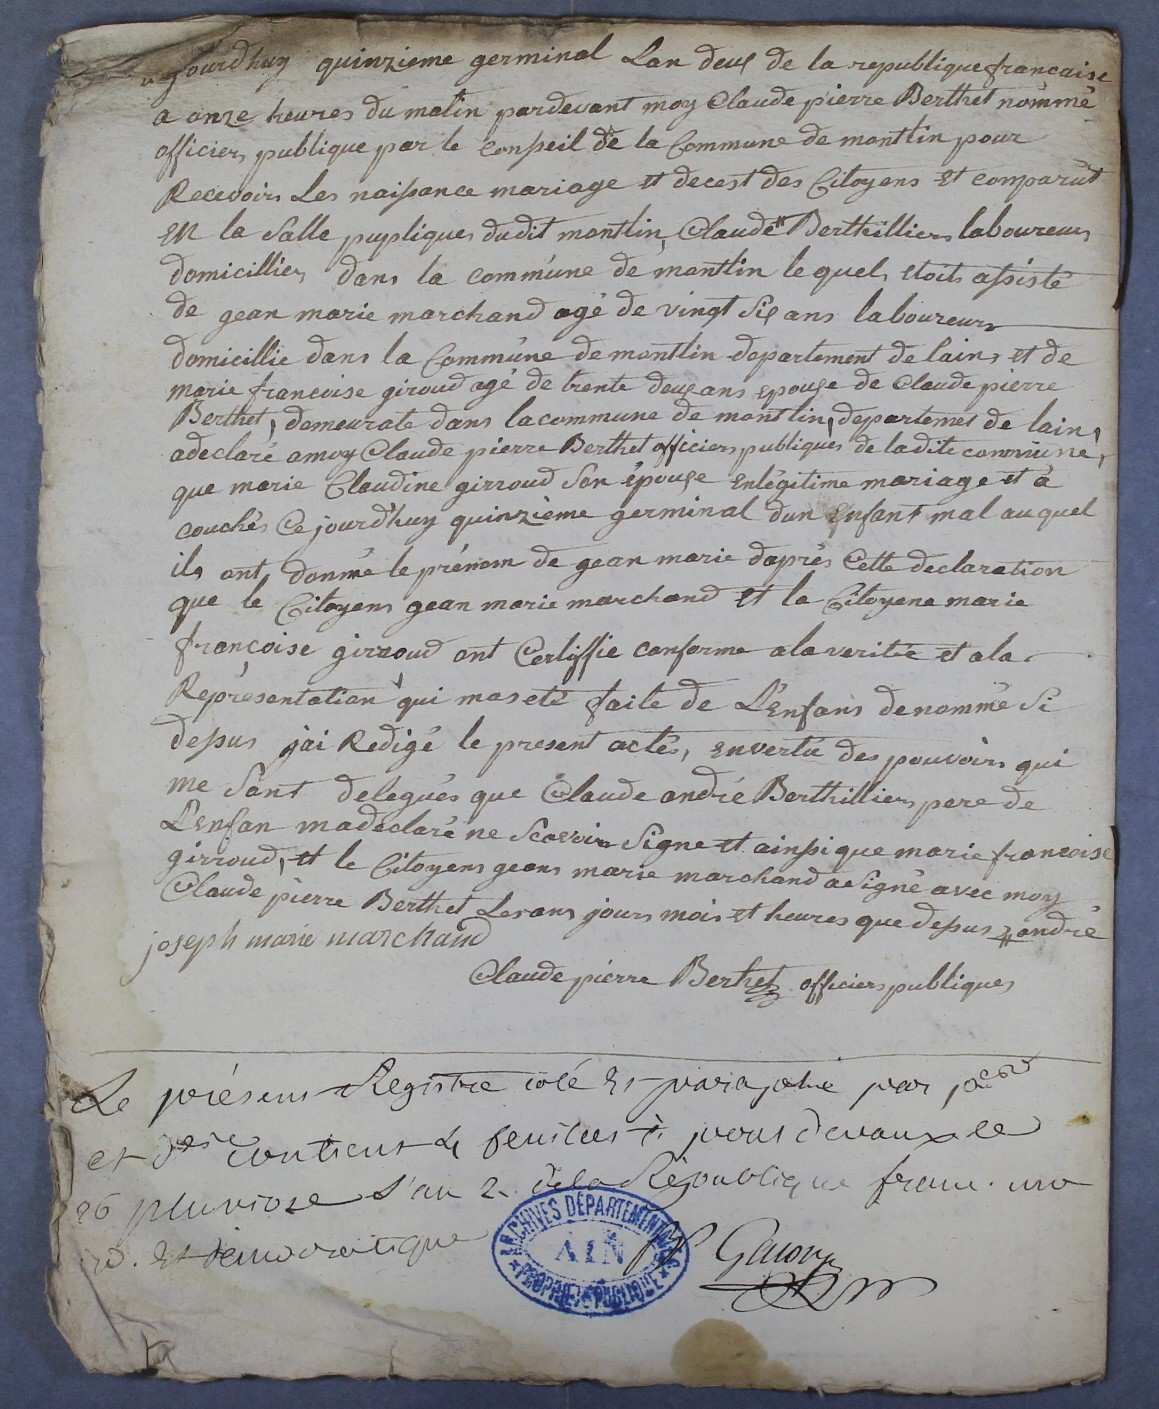 aujourdhuy quinzieme germinal Lan deux de la republique francaise
a onze heures du matin pardevant moy Claude pierre Berthet nommé
officiers publique par le conseil de la Commune de montlin pour
Recevoirs Les naissance mariage et decest des Citoyens et comparut
En la Salle pupliques dudit montlin, Claude # Berthilliers laboureurs
domicilliers dans la commune de montlin le quels etoits assisté
de gean marie marchand agé de vingt Six ans laboureurs
domicillie dans la Commune de montlin departement de lains et de
marie francoise giroud agé de trente deux ans epouse de Claude pierre
Berthet, demeurate dans la commune de montlin, departemet de lains,
adeclaré amoy Claude pierre Berthet officiers publiques de ladite commune,
que marie Claudine girroud Son épouse enlégitime mariage et à
couchés Ce jourdhuy quinzième germinal dun Enfant mal au quel
ils ont donmé le prénom de gean marie daprés Cette declaration
que le Citoyens gean marie marchand et la Citoyene marie
françoise girroud ont Certiffie conforme ala veritée et ala
Représentation qui maseté faite de L'énfans denommé Si
dessus jai Redigé le present actés, envertu des pouvoirs qui
me Sont delegués que Claude andré Berthilliers pere de
L'enfan madeclaré ne Scavoir Signe et ainsique marie francoise
girroud, et le Citoyens geans marie marchand a Signé avec moy
Claude pièrre Berthet Les ans jours mois et heures que dessus # andré
joseph marie marchand
Claude pierre Berthet officiers publiques
Le présent Registre coté Et paraphé par pre
et dre contient 4 feuillets à pont devaux ce
26 pluviose L'an 2. dela République franc. une
ind. Et démocratique
ARCHIVES DÉPARTEMENTALES
AIN
PROPRIÉTÉ PUBLIQUE